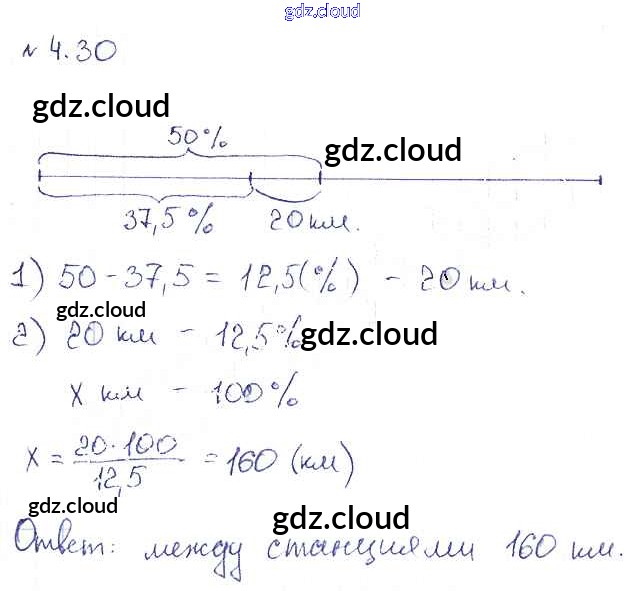 gdz.cloud
№ 4.30
gdz.cloud
50%
gdz.cloud
37,5% 20 км.
1) 50 - 37,5 = 12,5(%) - 20 км.
gdz.cloud
2) 20 км - 12,5%
gdz.cloud
x км - 100%
x = 20·100 / 12,5 = 160 (км)
gdz.cloud
gdz.cloud
Ответ: между станциями 160 км.